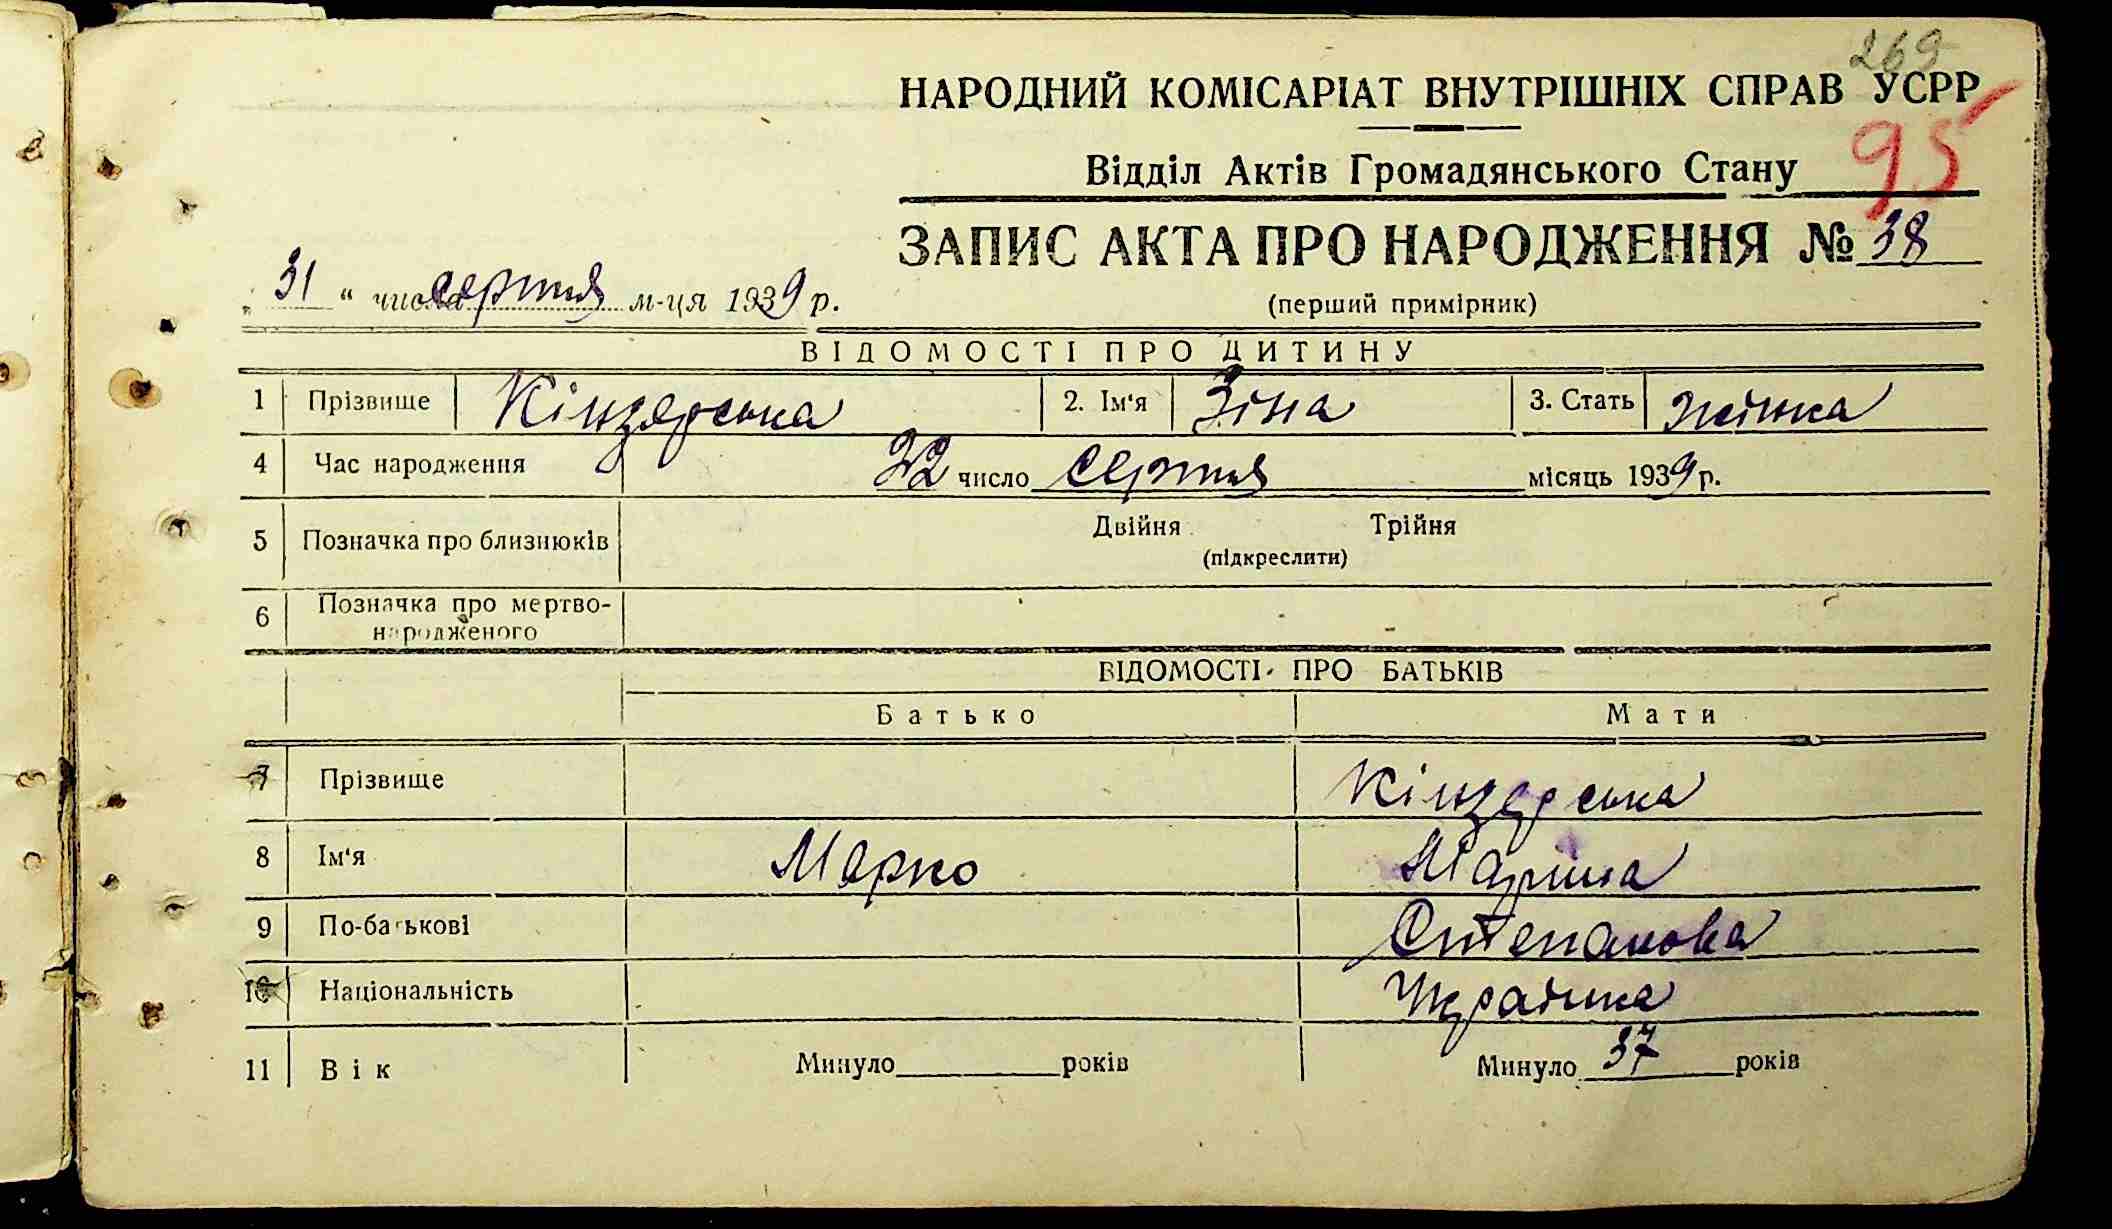 269
НАРОДНИЙ КОМІСАРІАТ ВНУТРІШНІХ СПРАВ УСРР
95
Відділ Актів Громадянського Стану
ЗАПИС АКТА ПРО НАРОДЖЕННЯ № 38
„ 31 “ числа серпня м-ця 1939 р.
(перший примірник)
ВІДОМОСТІ ПРО ДИТИНУ
1 Прізвище Кіндзерська 2. Ім'я Зіна 3. Стать жінка
4 Час народження 22 число серпня місяць 1939 р.
5 Позначка про близнюків Двійня Трійня
(підкреслити)
6 Позначка про мертво-
народженого
ВІДОМОСТІ ПРО БАТЬКІВ
Батько Мати
7 Прізвище Кіндзерська
8 Ім'я Марко Марина
9 По-батькові Степанова
10 Національність Українка
11 Вік Минуло років Минуло 37 років